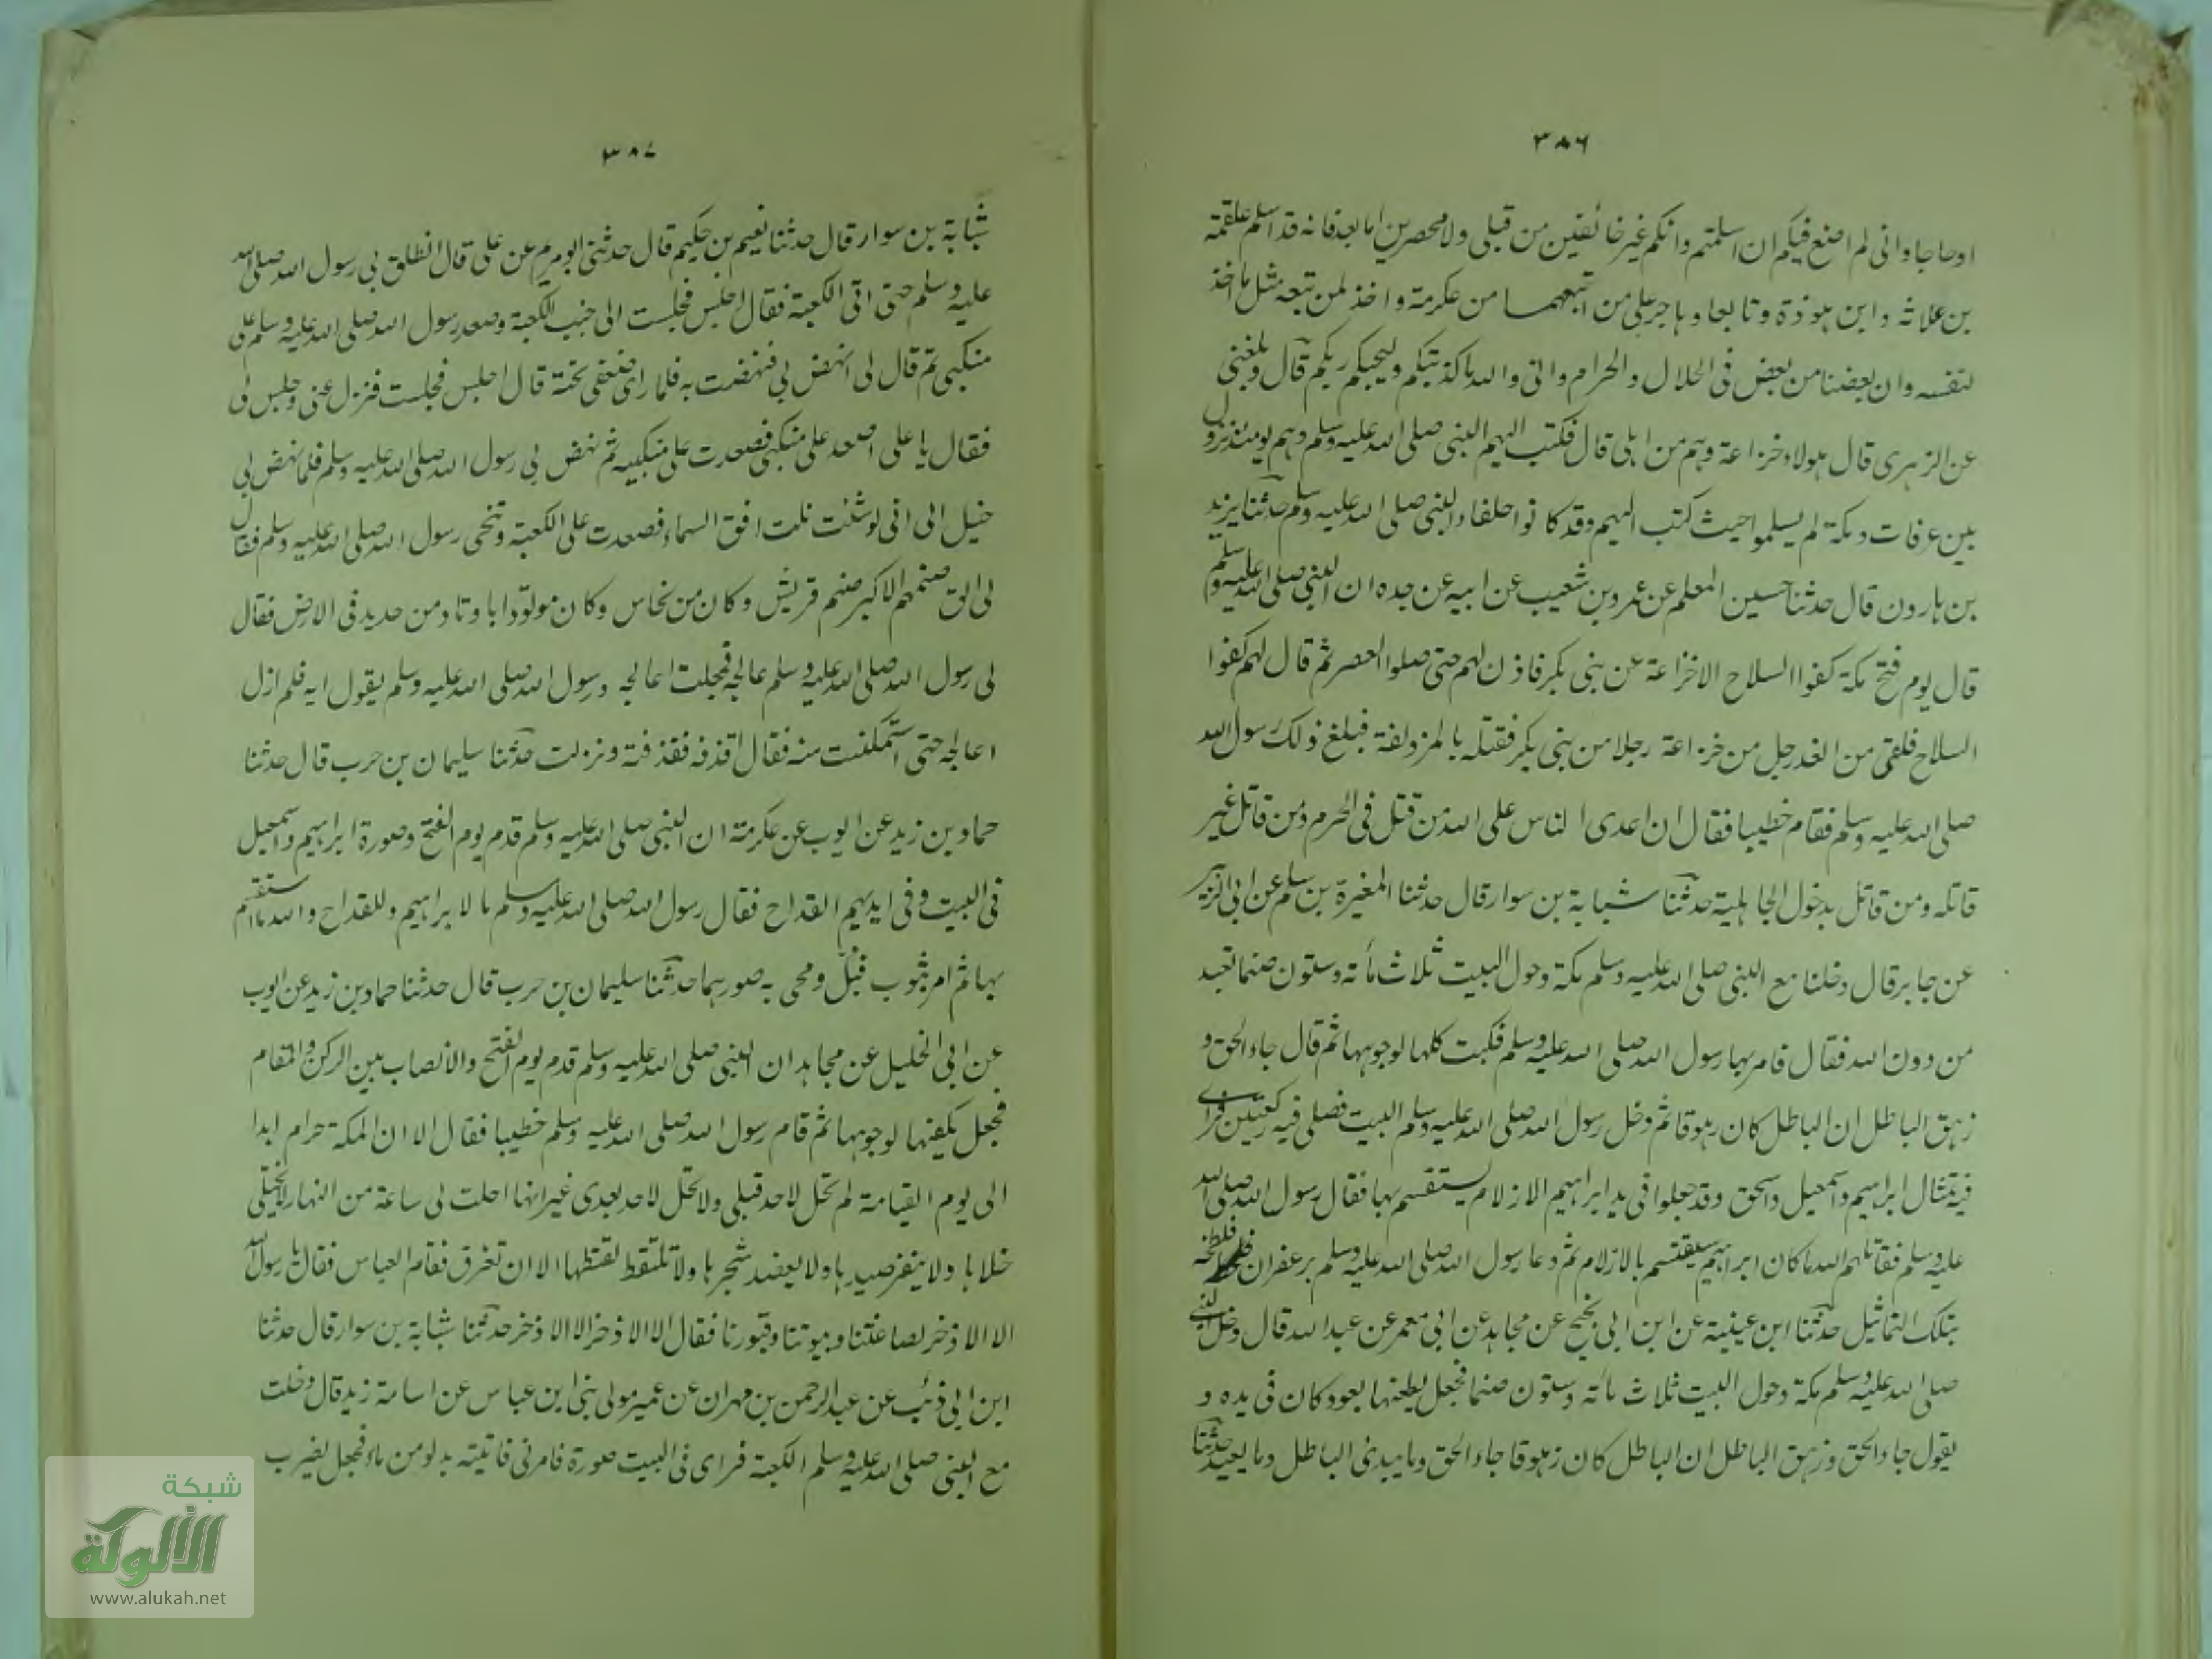 ٣٨٦
اوحاجا وانى لم اضع فيكم ان اسلمتم وانكم غير خائفين من قبلى ولا محصرين اما بعد فانه قد اسلم علقمة
بن علاثة وابن هوذة وتابعا وهاجر على من اتبعهما من عكرمة واخذ لمن تبعه مثل ما اخذ
لنفسه وان بعضنا من بعض فى الحلال والحرام وانى والله ما كذبتكم وليحيكم ربكم قال وبلغنى
عن الزهرى قال هولاء خزاعة وهم من اهلى قال فكتب اليهم النبى صلى الله عليه وسلم وهم يومئذ نزول
بين عرفات ومكة لم يسلموا حيث كتب اليهم وقد كانوا حلفاء النبى صلى الله عليه وسلم حدثنا يزيد
بن هارون قال حدثنا حسين المعلم عن عمرو بن شعيب عن ابيه عن جده ان النبى صلى الله عليه وسلم
قال يوم فتح مكة كفوا السلاح الا خزاعة عن بنى بكر فاذن لهم حتى صلوا العصر ثم قال لهم كفوا
السلاح فلقى من الغد رجل من خزاعة رجلا من بنى بكر فقتله بالمزدلفة فبلغ ذلك رسول الله
صلى الله عليه وسلم فقام خطيبا فقال ان اعدى الناس على الله من قتل فى الحرم ومن قاتل غير
قاتله ومن قاتل بدخول الجاهلية حدثنا شبابة بن سوار قال حدثنا المغيرة بن مسلم عن ابى الزبير
عن جابر قال دخلنا مع النبى صلى الله عليه وسلم مكة وحول البيت ثلاث مأته وستون صنما تعبد
من دون الله فقال فامر بها رسول الله صلى الله عليه وسلم فكبت كلها لوجوهها ثم قال جاء الحق و
زهق الباطل ان الباطل كان زهوقا ثم دخل رسول الله صلى الله عليه وسلم البيت فصلى فيه ركعتين فراى
فيه تمثال ابراهيم واسمعيل واسحق وقد جعلوا فى يد ابراهيم الازلام يستقسم بها فقال رسول الله صلى الله
عليه وسلم فقاتلهم الله ما كان ابراهيم يستقسم بالازلام ثم دعا رسول الله صلى الله عليه وسلم بزعفران فلطخه
بتلك التماثيل حدثنا ابن عيينة عن ابن ابى نجيح عن مجاهد عن ابى معمر عن عبد الله قال دخل النبى
صلى الله عليه وسلم مكة وحول البيت ثلاث مأته وستون صنما فجعل يطعنها بعود كان فى يده و
يقول جاء الحق وزهق الباطل ان الباطل كان زهوقا جاء الحق وما يبدئ الباطل وما يعيد حدثنا
٣٨٧
شبابة بن سوار قال حدثنا نعيم بن حكيم قال حدثنى ابو مريم عن على قال انطلق بى رسول الله صلى الله
عليه وسلم حتى اتى الكعبة فقال اجلس فجلست الى جنب الكعبة وصعد رسول الله صلى الله عليه وسلم على
منكبى ثم قال لى انهض بى فنهضت به فلما راى ضعفى تحته قال اجلس فجلست فنزل عنى وجلس لى
فقال يا على اصعد على منكبى فصعدت على منكبيه ثم نهض بى رسول الله صلى الله عليه وسلم فلما نهض بى
خيل الى انى لو شئت نلت افق السماء فصعدت على الكعبة وتنحى رسول الله صلى الله عليه وسلم فقال
لى الق صنمهم الاكبر صنم قريش وكان من نحاس وكان موتودا باوتاد من حديد فى الارض فقال
لى رسول الله صلى الله عليه وسلم عالجه فجعلت اعالجه ورسول الله صلى الله عليه وسلم يقول ايه فلم ازل
اعالجه حتى استمكنت منه فقال اقذفه فقذفته ونزلت حدثنا سليمان بن حرب قال حدثنا
حماد بن زيد عن ايوب عن عكرمة ان النبى صلى الله عليه وسلم قدم يوم الفتح وصورة ابراهيم واسمعيل
فى البيت وفى ايديهم القداح فقال رسول الله صلى الله عليه وسلم ما لابراهيم وللقداح والله ما استقسم
بها ثم امر بثوب فبل ومحى به صورهما حدثنا سليمان بن حرب قال حدثنا حماد بن زيد عن ايوب
عن ابى الخليل عن مجاهد ان النبى صلى الله عليه وسلم قدم يوم الفتح والانصاب بين الركن والمقام
فجعل يكفئها لوجوهها ثم قام رسول الله صلى الله عليه وسلم خطيبا فقال الا ان المكة حرام ابدا
الى يوم القيامة لم تحل لاحد قبلى ولا تحل لاحد بعدى غير انها احلت لى ساعة من النهار لا يختلى
خلاها ولا ينفر صيدها ولا يعضد شجرها ولا تلتقط لقتطها الا ان تعرق فقام العباس فقال يا رسول الله
الا الاذخر لصاغتنا وبيوتنا وقبورنا فقال الا الاذخر الا الاذخر حدثنا شبابة بن سوار قال حدثنا
ابن ابى ذئب عن عبد الرحمن بن مهران عن عمير مولى بنى ابن عباس عن اسامة زيد قال دخلت
مع النبى صلى الله عليه وسلم الكعبة فراى فى البيت صورة فامرنى فاتيته بدلو من ماء فجعل يضرب
شبكة
الألوكة
www.alukah.net